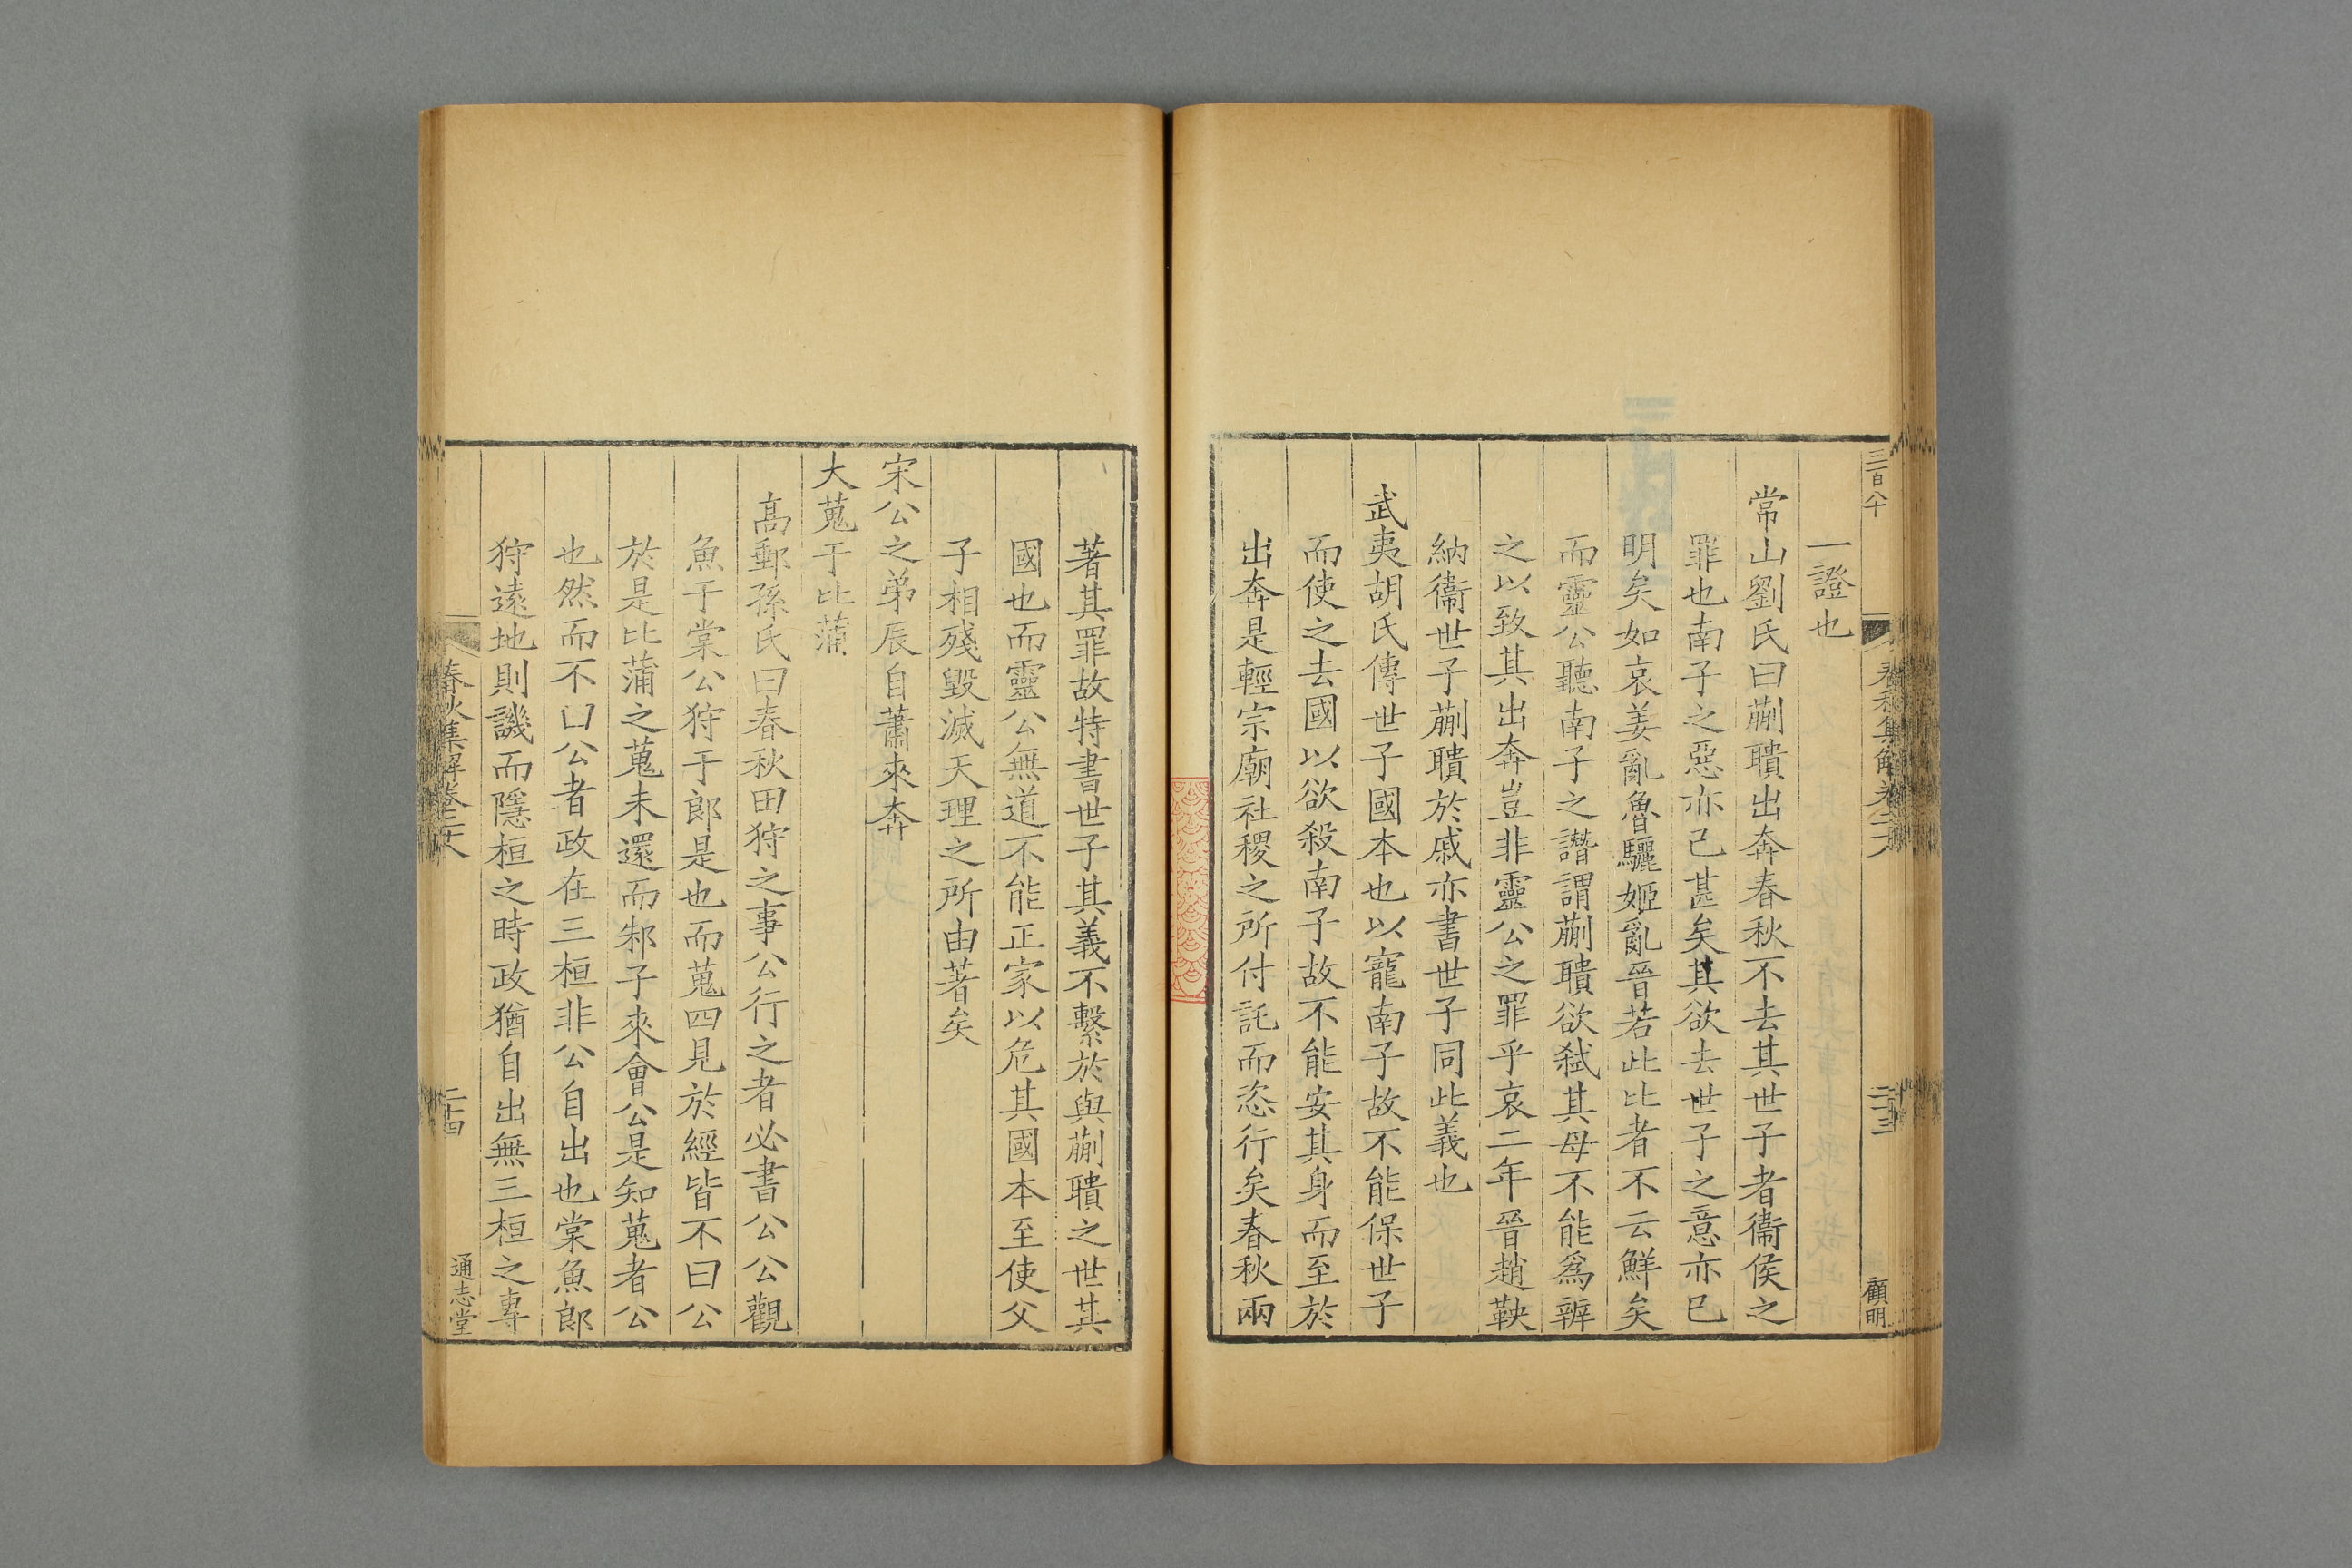 三百八十
春秋集解卷二十八
二十三
顧明
一證也
常山劉氏曰蒯聵出奔春秋不去其世子者衞侯之
罪也南子之惡亦已甚矣其欲去世子之意亦已
明矣如哀姜亂魯驪姬亂晉若此比者不云鮮矣
而靈公聽南子之譖謂蒯聵欲弑其母不能爲辨
之以致其出奔豈非靈公之罪乎哀二年晉趙鞅
納衞世子蒯聵於戚亦書世子同此義也
武夷胡氏傳世子國本也以寵南子故不能保世子
而使之去國以欲殺南子故不能安其身而至於
出奔是輕宗廟社稷之所付託而恣行矣春秋兩
著其罪故特書世子其義不繫於與蒯聵之世其
國也而靈公無道不能正家以危其國本至使父
子相殘毀滅天理之所由著矣
宋公之弟辰自蕭來奔
大蒐于比蒲
高郵孫氏曰春秋田狩之事公行之者必書公公觀
魚于棠公狩于郎是也而蒐四見於經皆不曰公
於是比蒲之蒐未還而邾子來會公是知蒐者公
也然而不曰公者政在三桓非公自出也棠魚郎
狩遠地則譏而隱桓之時政猶自出無三桓之專
春秋集解卷二十八
二十四
通志堂